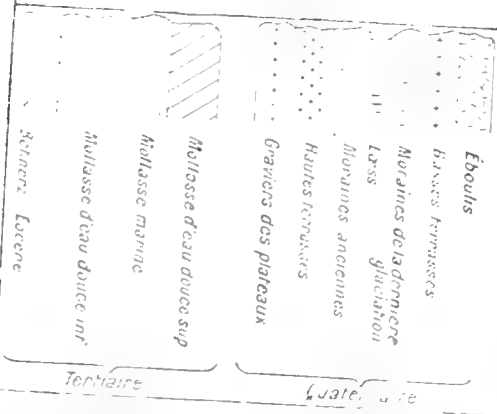 Éboulis
Basses terrasses
Moraines de la dernière
glaciation
Lœss
Moraines anciennes
Hautes terrasses
Graviers des plateaux
Mollasse d'eau douce sup
Mollasse marine
Mollasse d'eau douce inf
Eocene
Tertiaire